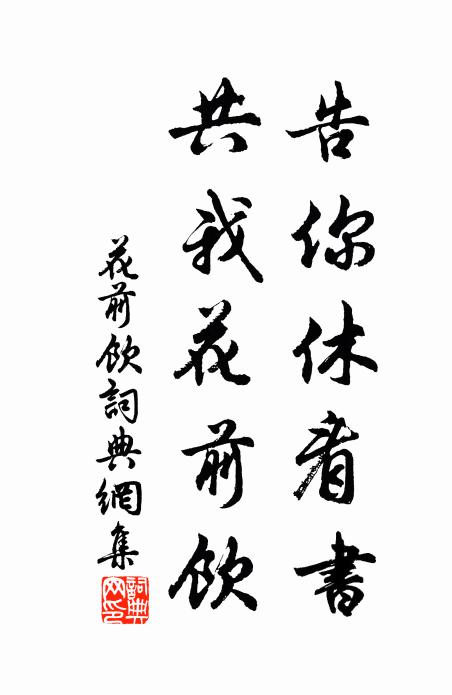 告你休看書
共我花前飲
花前飲詞典網集
詞典网印